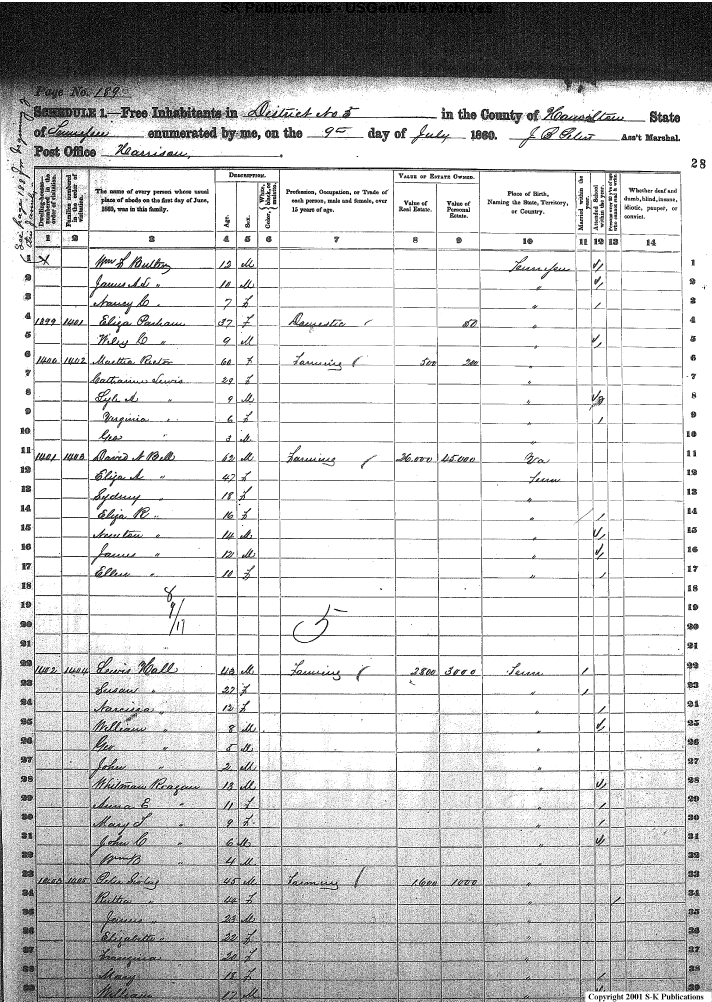 SK Publications - USGenWeb Archives
Page No. 189
SCHEDULE 1.—Free Inhabitants in District No 5 in the County of Hamilton State
of Tennessee enumerated by me, on the 9th day of July 1860. Ass't Marshal.
Post Office Harrison
28
DESCRIPTION. VALUE OF ESTATE OWNED.
Dwelling-houses—numbered in the order of visitation. Families numbered in the order of visitation. The name of every person whose usual place of abode on the first day of June, 1860, was in this family. Age. Sex. Color, White, black, or mulatto. Profession, Occupation, or Trade of each person, male and female, over 15 years of age. Value of Real Estate. Value of Personal Estate. Place of Birth, Naming the State, Territory, or Country. Married within the year. Attended School within the year. Whether deaf and dumb, blind, insane, idiotic, pauper, or convict.
1 2 3 4 5 6 7 8 9 10 11 12 13 14
1 X Wm 12 M Tennessee 1
2 James " 10 M " 2
3 Nancy C. " 7 f " 3
4 1399 1401 Eliza Parham 37 f Domestic 50 " 4
5 Wiley C " 9 M " 5
6 1400 1402 Martha 60 f Farming 500 200 " 6
7 Catharine Lewis 29 f " 7
8 Lyle A " 9 M " 8
9 Virginia " 6 f " 9
10 Geo " 3 M " 10
11 1401 1403 David N Bell 62 M Farming 26,000 45,000 Va 11
12 Eliza A " 47 f Tenn 12
13 Sydney " 18 f " 13
14 Eliza R " 16 f 14
15 Newton " 14 M " 15
16 James " 12 M " 16
17 Ellen " 10 f " 17
18 8 18
19 9/17 5 19
20 20
21 21
22 1402 1404 Lewis Hall 43 M Farming 2800 3000 Tenn 1 22
23 Susan " 27 f " 1 23
24 Narcissa " 12 f " 24
25 William " 8 M " 25
26 Geo " 5 M " 26
27 John " 2 M " 27
28 Whitman Reagan 13 M " 28
29 Anna E " 11 f " 29
30 Mary " 9 f " 30
31 John C " 6 M " 31
32 Wm B " 4 M 32
33 1403 1405 Peter 45 M Farming 1600 1000 " 33
34 Rutha " 44 f " 34
35 James " 23 M " 35
36 Elizabeth " 22 f " 36
37 20 f " 37
38 Mary " 18 f " 38
39 William " 17 M " 39
Copyright 2001 S-K Publications